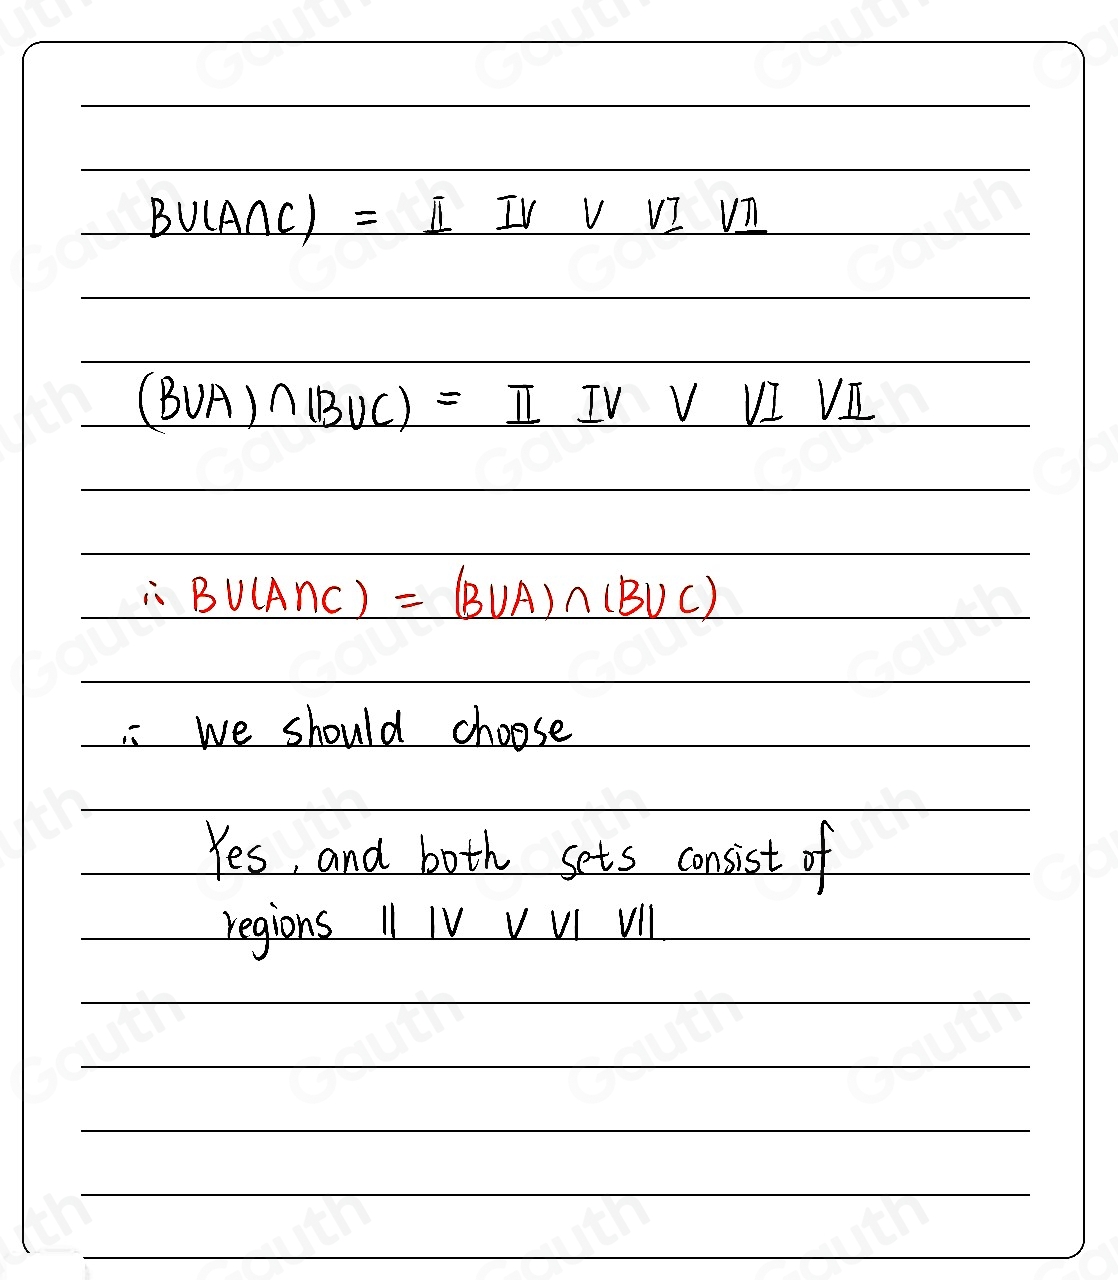 B∪(A∩C) = II IV V VI VII
(B∪A)∩(B∪C) = II IV V VI VII
∴ B∪(A∩C) = (B∪A)∩(B∪C)
∴ we should choose
Yes, and both sets consist of
regions II IV V VI VII.